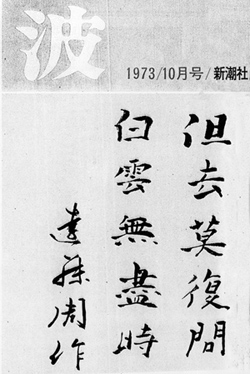 波
1973/10月号/新潮社
但去莫復問
白雲無盡時
遠藤周作